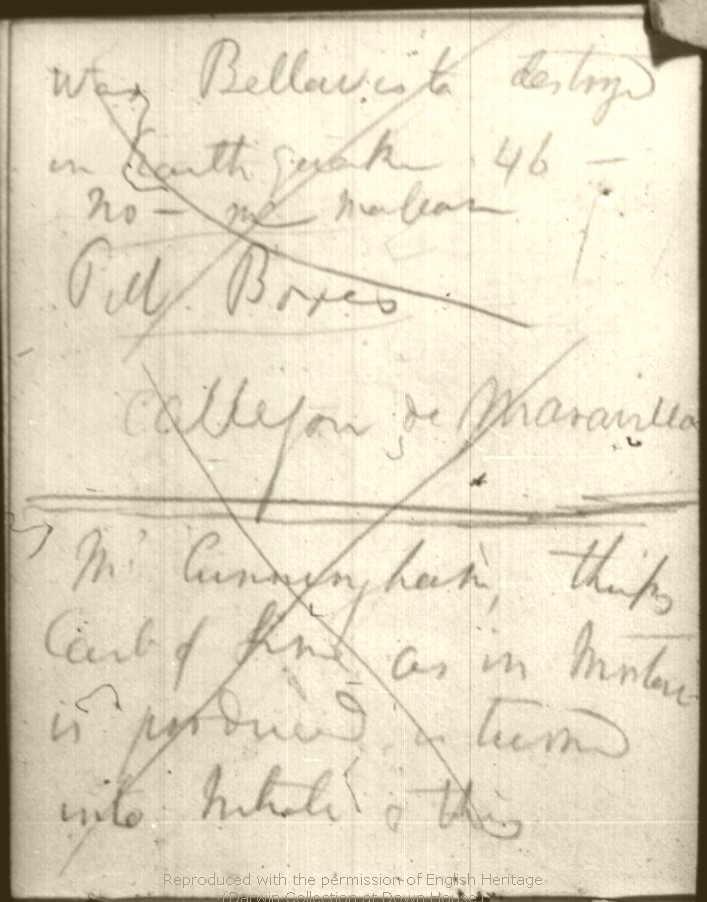 Was Bellavista destroyed
in Earthquake 46 —
No — me
Pill Boxes
Callejon de Maravilla
Mr Cunningham, thinks
Carb of lime as in Mortar
is produced, is turned
into Nitrate & this
Reproduced with the permission of English Heritage
(Darwin Collection at Down House)